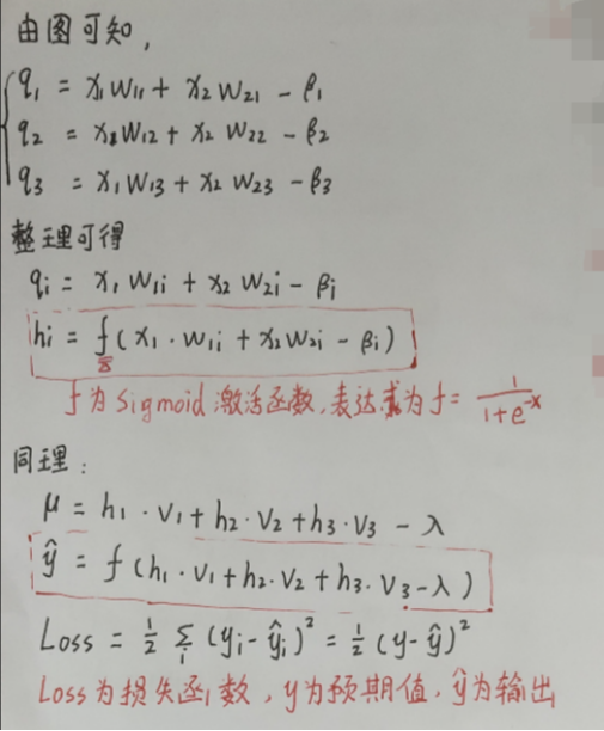 由图可知,
q₁ = x₁w₁₁ + x₂w₂₁ - β₁
q₂ = x₁w₁₂ + x₂w₂₂ - β₂
q₃ = x₁w₁₃ + x₂w₂₃ - β₃
整理可得
qᵢ = x₁w₁ᵢ + x₂w₂ᵢ - βᵢ
hᵢ = f(x₁·w₁ᵢ + x₂w₂ᵢ - βᵢ)
f为Sigmoid激活函数,表达式为f = 1/(1+e^-x)
同理:
μ = h₁·v₁ + h₂·v₂ + h₃·v₃ - λ
ŷ = f(h₁·v₁ + h₂·v₂ + h₃·v₃ - λ)
Loss = ½ Σᵢ (yᵢ - ŷᵢ)² = ½ (y - ŷ)²
Loss为损失函数,y为预期值,ŷ为输出